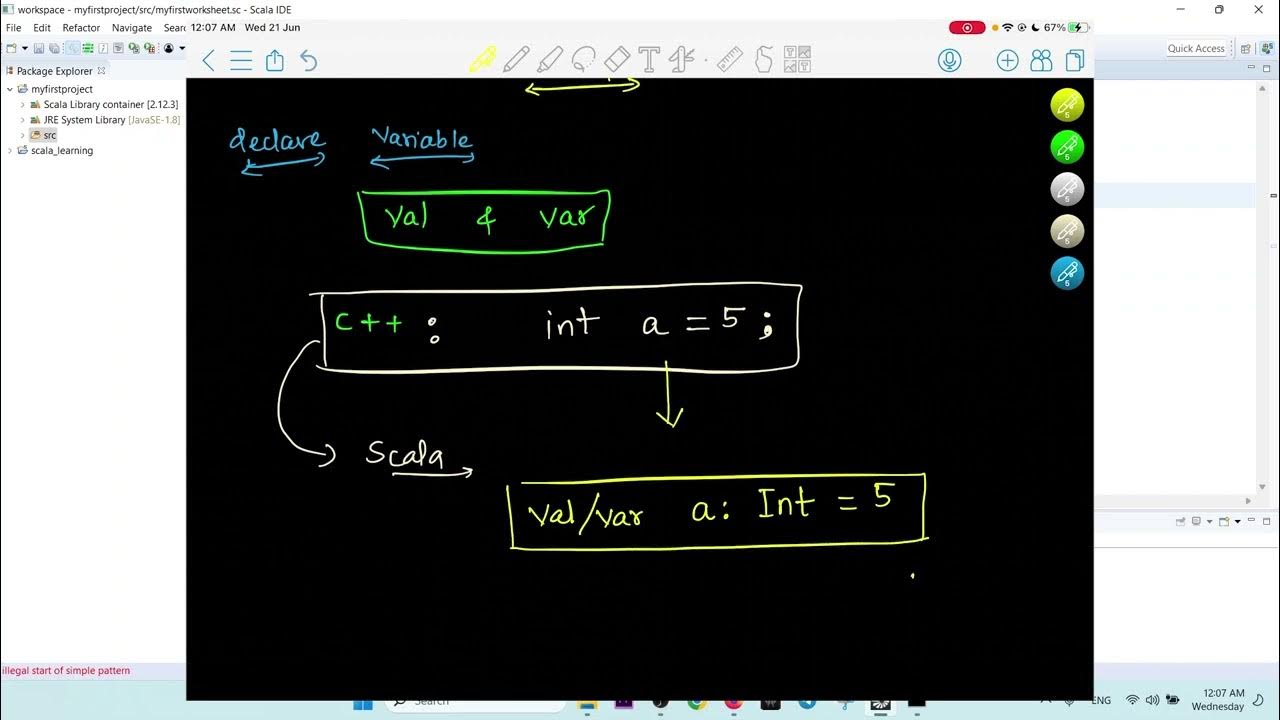 workspace - myfirstproject/src/myfirstworksheet.sc - Scala IDE
File Edit Refactor Navigate Sear
12:07 AM Wed 21 Jun
67%
Quick Access
Package Explorer
myfirstproject
Scala Library container [2.12.3]
JRE System Library [JavaSE-1.8]
src
scala_learning
5
5
5
5
5
declare variable
val & var
C++ : int a = 5 ;
Scala
val/var a: Int = 5
illegal start of simple pattern
Search
ENG
12:07 AM
Wednesday